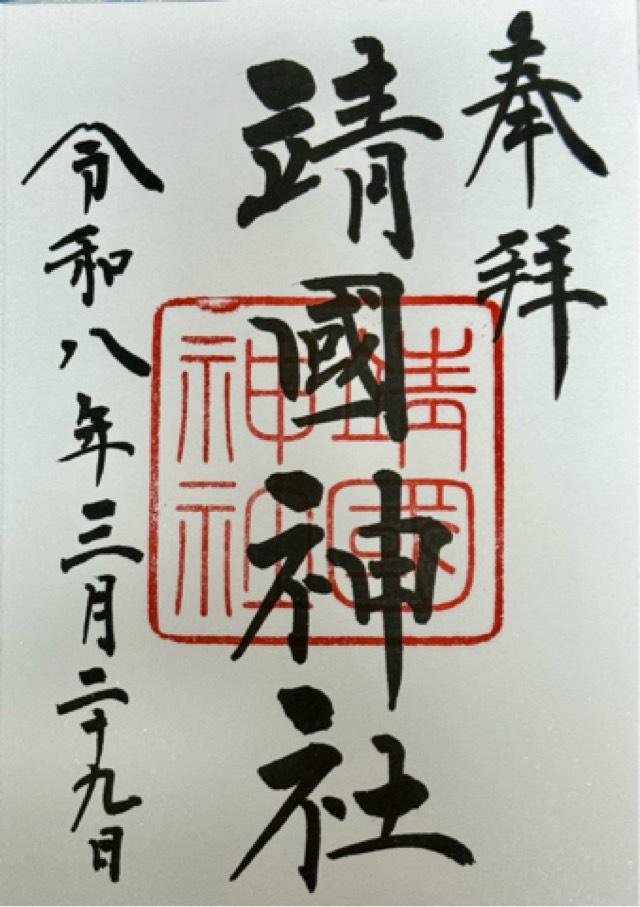 奉拝
靖國神社
靖國
神社
令和八年三月二十九日